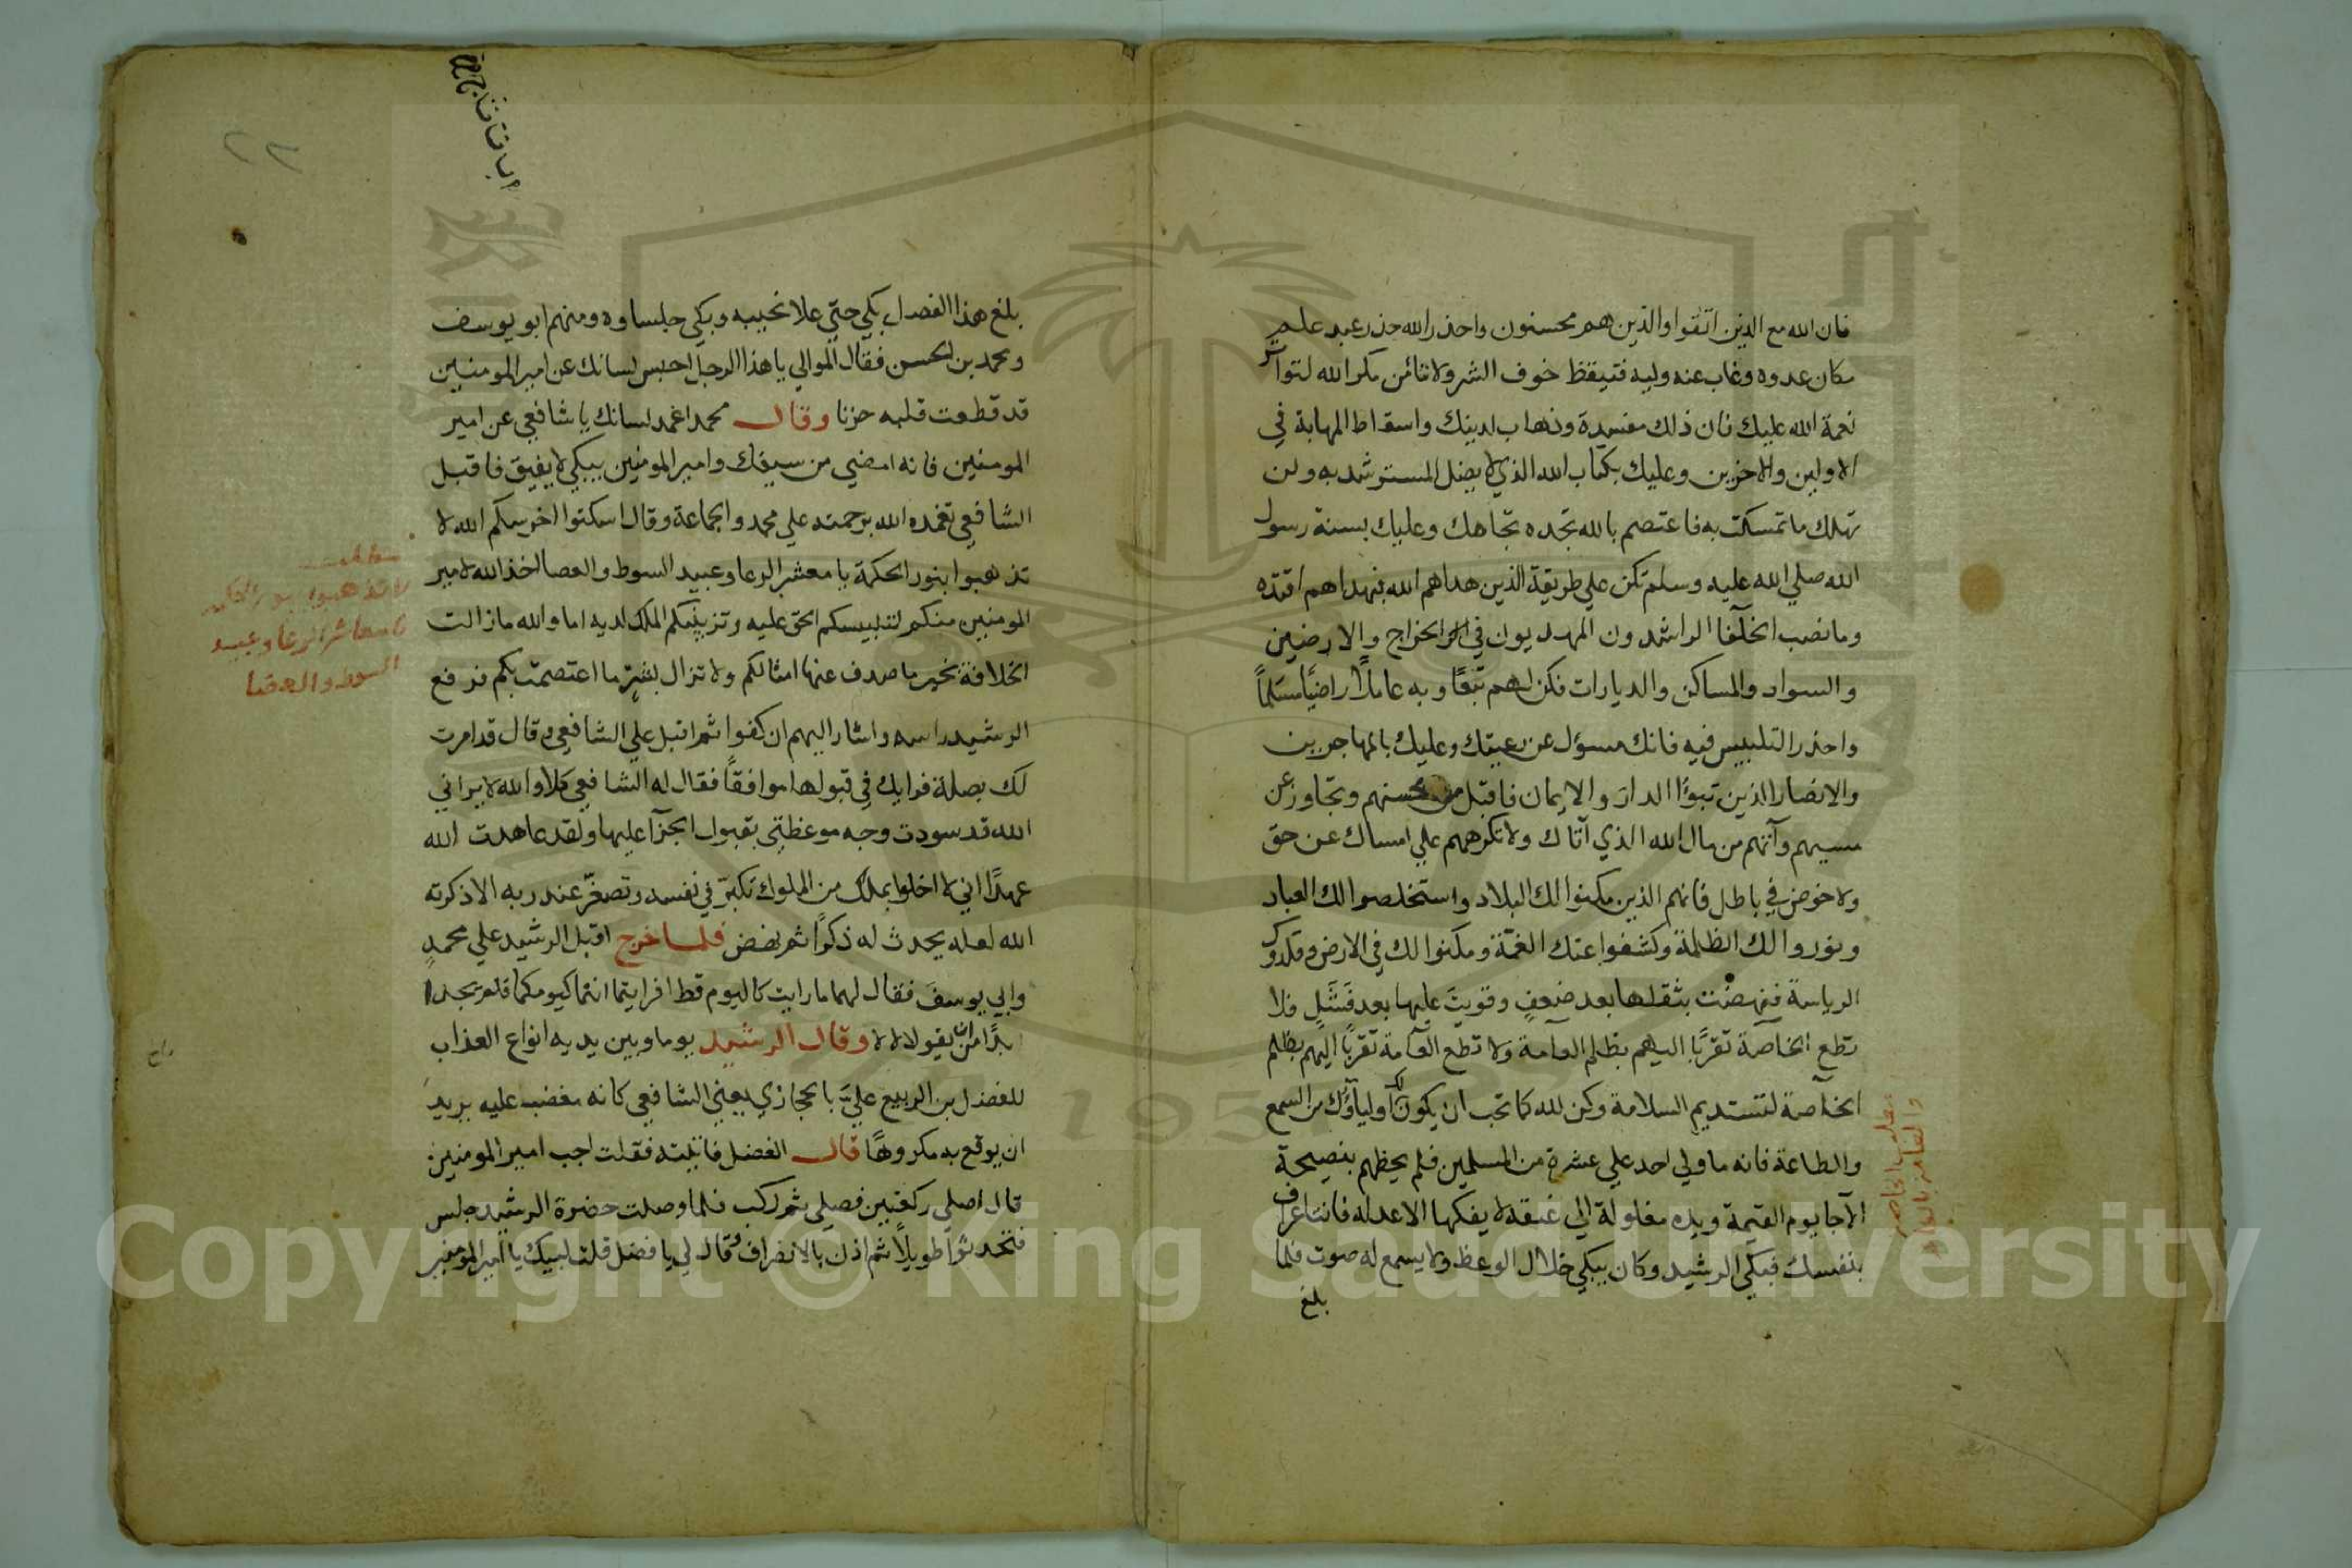 فان الله مع الذين اتقوا والذين هم محسنون واحذر الله حذر عبد علم
مكان عدوه وغاب عنه وليه فتيقظ خوف الشر ولا تأمن مكر الله لتواتر
نعمة الله عليك فان ذلك مفسدة وذهاب لدينك واسقاط المهابة في
الاولين والاخرين وعليك بكتاب الله الذي لا يضل المسترشد به ولن
تهلك ما تمسكت به فاعتصم بالله تجده تجاهك وعليك بسنة رسول
الله صلي الله عليه وسلم تكن علي طريقة الذين هداهم الله فبهداهم اقتده
وما نصب الخلفا الراشدون المهديون في الخراج والارضين
والسواد والمساكن والديارات فكن لهم تبعًا وبه عاملًا راضيًا مسلمًا
واحذر التلبيس فيه فانك مسؤل عن رعيتك وعليك بالمهاجرين
والانصار الذين تبوؤا الدار والايمان فاقبل من محسنهم وتجاوز عن
مسيهم وآتهم من مال الله الذي آتاك ولا تكرههم علي امساك عن حق
ولا خوض في باطل فانهم الذين مكنوا لك البلاد واستخلصوا لك العباد
ونوروا لك الظلمة وكشفوا عنك الغمة ومكنوا لك في الارض وقلدوك
الرياسة فنهضت بثقلها بعد ضعف وقويت عليها بعد فشل فلا
تطع الخاصة تقربًا اليهم بظلم العامة ولا تطع العآمة تقربًا اليهم بظلم
الخآصة لتستديم السلامة وكن لله كما تحب ان يكون لك اولياؤك من السمع
والطاعة فانه ما ولي احد علي عشرة من المسلمين فلم يحطهم بنصيحة
الا جا يوم القيمة ويده مغلولة الي عنقه لا يفكها الا عدله فانت اعرف
بنفسك فبكي الرشيد وكان يبكي خلال الوعظ ولا يسمع له صوت فلما
بلغ
بلغ هذا الفصل بكي حتي علا نحيبه وبكي جلساوه ومنهم ابو يوسف
ومحمد بن الحسن فقال الموالي يا هذا الرجل احبس لسانك عن امير المومنين
قد قطعت قلبه حزنا وقال محمد اغمد لسانك يا شافعي عن امير
المومنين فانه امضي من سيفك وامير المومنين يبكي لا يفيق فاقبل
الشافعي تغمده الله برحمته علي محمد والجماعة وقال اسكتوا اخرسكم الله لا
تذهبوا بنور الحكمة يا معشر الرعا وعبيد السوط والعصا اخذ الله لامير
المومنين منكم لتلبيسكم الحق عليه وتزيينكم الملك لديه اما والله ما زالت
الخلافة بخير ما صدف عنها امثالكم ولا تزال بشرٍ ما اعتصمت بكم فرفع
الرشيد راسه واشار اليهم ان كفوا ثم اقبل علي الشافعي وقال قد امرت
لك بصلة فرايك في قبولها موافقًا فقال له الشافعي كلا والله لا يراني
الله قد سودت وجه موعظتي بقبول الجزآ عليها ولقد عاهدت الله
عهدًا اني لا اخلوا بملك من الملوك تكبر في نفسه وتصغر عند ربه الا ذكرته
الله لعله يحدث له ذكرًا ثم نهض فلما خرج اقبل الرشيد علي محمدٍ
وابي يوسف فقال لهما ما رايت كاليوم قط افرايتما انتما كيومكما فلم يجدا
بدًا من ان يقولا لا لا وقال الرشيد يوما وبين يديه انواع العذاب
للفضل بن الربيع عليّ بالحجازي يعني الشافعي كانه مغضب عليه يريد
ان يوقع به مكروهًا قال الفضل فاتيته فقلت اجب امير المومنين
قال اصلي ركعتين فصلي ثم ركب فلما وصلت حضرة الرشيد جلس
فتحدثوا طويلًا ثم اذن بالانصراف وقال لي يا فضل قلت لبيك يا امير المومنين
لا تذهبوا بنور الحكمه
يا معاشر الرعا وعبيد
السوط والعصا
٢٢
Copyright © King Saud University
1957